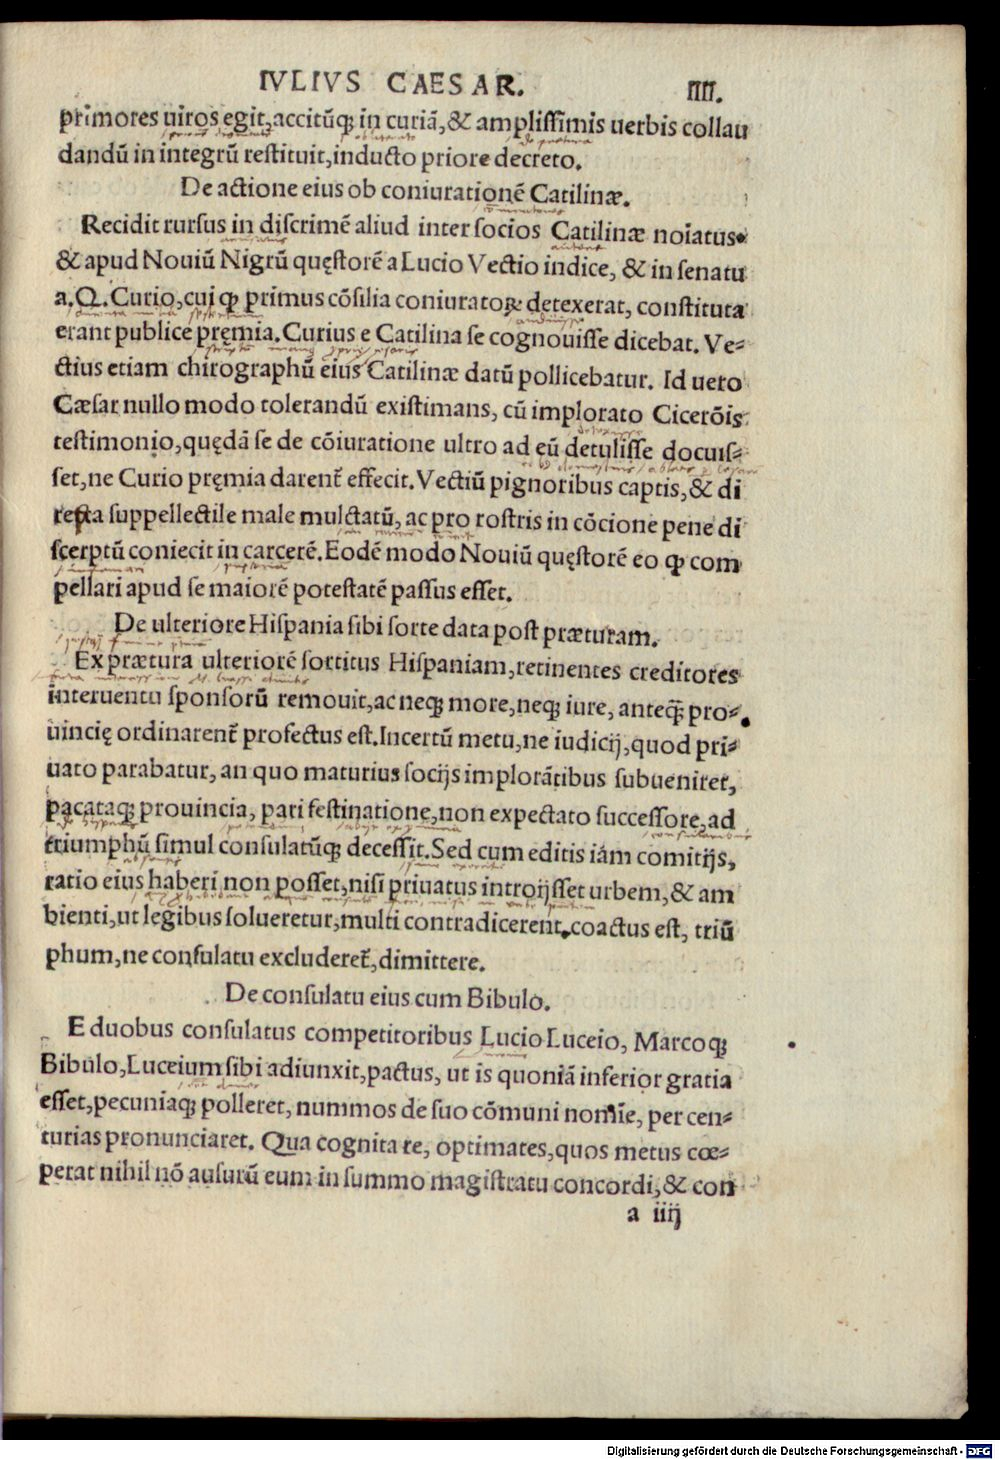 IVLIVS CAESAR. IIII.
primores uiros egit,accitūq; in curiā,& amplissimis uerbis collau
dandū in integrū restituit,inducto priore decreto.
De actione eius ob coniurationē Catilinæ.
Recidit rursus in discrimē aliud inter socios Catilinæ noiatus
& apud Nouiū Nigrū quęstorē a Lucio Vectio indice, & in senatu
a.Q.Curio,cui ꝙ primus cōsilia coniuratoꝝ detexerat, constituta
erant publice pręmia.Curius e Catilina se cognouisse dicebat. Ve-
ctius etiam chirographū eius Catilinæ datū pollicebatur. Id uero
Cæsar nullo modo tolerandū existimans, cū implorato Cicerōis
testimonio,quędā se de cōiuratione ultro ad eū detulisse docuis-
set,ne Curio pręmia darent̄ effecit.Vectiū pignoribus captis,& di
repta suppellectile male mulctatū, ac pro rostris in cōcione pene di
scerptū coniecit in carcerē.Eodē modo Nouiū quęstorē eo ꝙ com
pellari apud se maiorē potestatē passus esset.
De ulteriore Hispania sibi sorte data post præturam.
Ex prætura ulteriorē sortitus Hispaniam,retinentes creditores
interuentu sponsorū remouit,ac neq; more,neq; iure, anteq̄; pro-
uincię ordinarent̄ profectus est.Incertū metu,ne iudicij,quod pri-
uato parabatur, an quo maturius socijs implorātibus subueniret,
pacataq; prouincia, pari festinatione,non expectato successore,ad
triumphū simul consulatūq; decessit.Sed cum editis iám comitijs,
ratio eius haberi non posset,nisi priuatus introijsset urbem,& am
bienti,ut legibus solueretur,multi contradicerent.coactus est, triū
phum,ne consulatu excluderet̄,dimittere.
De consulatu eius cum Bibulo.
E duobus consulatus competitoribus Lucio Luceio, Marcoq;
Bibulo,Luceium sibi adiunxit,pactus, ut is quoniā inferior gratia
esset,pecuniaq; polleret, nummos de suo cōmuni nomīe, per cen-
turias pronunciaret. Qua cognita re, optimates,quos metus cœ-
perat nihil nō ausurū eum in summo magistratu concordi,& con
a iiij
Digitalisierung gefördert durch die Deutsche Forschungsgemeinschaft - DFG